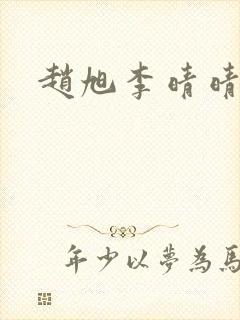 趙旭李晴晴
年少以夢為馬